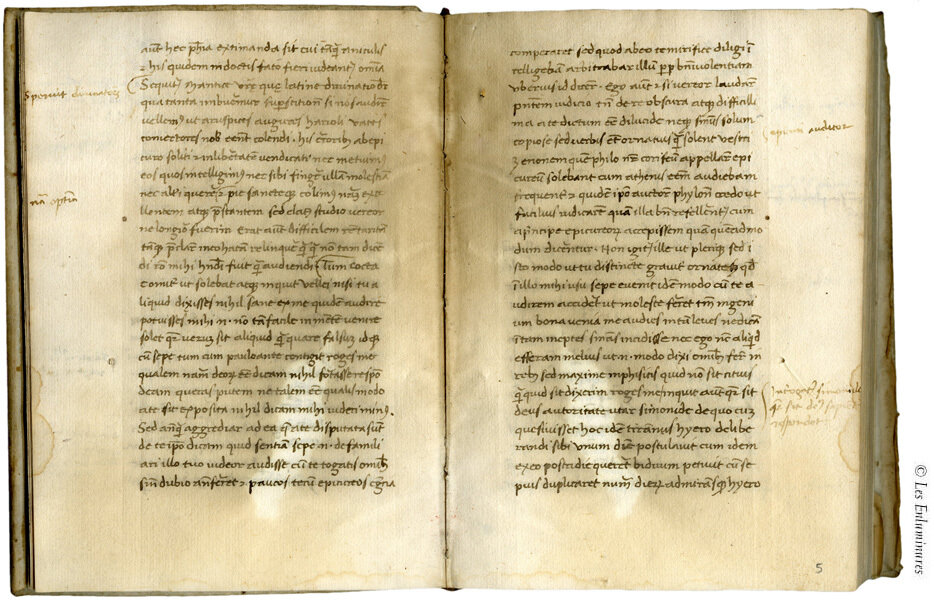 aut hec phia extimanda sit cui tanq aniculis
& his quidem indoctis fato fieri videantr omnia
Sequitr mantice vrē que latine divinatio dr
qua tanta imbueremur superstitione si vos audire
vellemus ut aruspices augures harioli vates
coniectores nob eent colendi his terrorib ab epi
curo soluti & in libertatem vendicati nec metuimus
eos quos intelligimus nec sibi fingere ullam molestia
nec alteri querere & pie sancteque colimus naturam exce
llentem atque prestantem sed elatus studio vereor
ne longior fuerim Erat autem difficilem rem tanta
tamque preclaram incohatam relinquere quanquam non tam dice
di ratio mihi habenda fuit quam audiendi Tum cocta
Comiter ut solebat atque inquit vellei nisi tu a
liquid dixisses nihil sane ex me quidem audire
potuisses mihi n. non tam facile in mentem venire
solet quare verum sit aliquid quam quare falsum idque
cum sepe tum cum te paulo ante contigit roges me
qualem naturam deorum esse dicam nihil fortasse respo
deam queras putem ne talem esse qualis modo
a te sit exposita nihil dicam mihi videri minus.
Sed anteq aggrediar ad ea que a te disputata sunt
de te ipso dicam quid sentiam sepe n. de famili
ari illo tuo videor audisse cum te togatis omnibus
sine dubio anteferret & paucos tecum epicureos e grecia
Sprevit divinatores
compararet sed quod ab eo te mirifice diligi in
telligebam arbitrabar illum propter benivolentiam
uberius id dicere. Ego autem & si vereor laudare
presentem iudico tamen de re obscura atque difficili
m a te dictum esse dilucide neque sententiis solum
copiose sed verbis etiam ornatius quam solent vestri
Zenonem quem philo noster coriseum appellare epi
cureum solebant cum athenis essem audiebam
frequenter & quidem ipso auctore phylone credo ut
facilius iudicarem quam illa bene refellerentur cum
a principe epicureorum accepissem quemadmo
dum dicerentur. Non igitur ille ut plerique sed i
sto modo ut tu distincte graviter ornate sed quod
in illo mihi usu sepe evenit idem modo cum te a-
udirem accidebat ut moleste ferrem tantum ingeni
um bona venia me audies in tam leves ne dicam
in tam ineptas sententias incidisse nec ego nunc aliquid
efferam melius ut n. modo dixi omnibus fere in
rebus sed maxime in phisicis quid non sit citius
quam quid sit dixerim roges me in quit aut quale sit
deus autoritate utar simonide de quo cum
quesivisset hoc idem tirannus hyero delibe
randi sibi unum diem postulavit cum idem
ex eo postridie quereret biduum petivit cum se
pius duplicaret numerum dierum admiransque hyero
5
© Les Enluminures